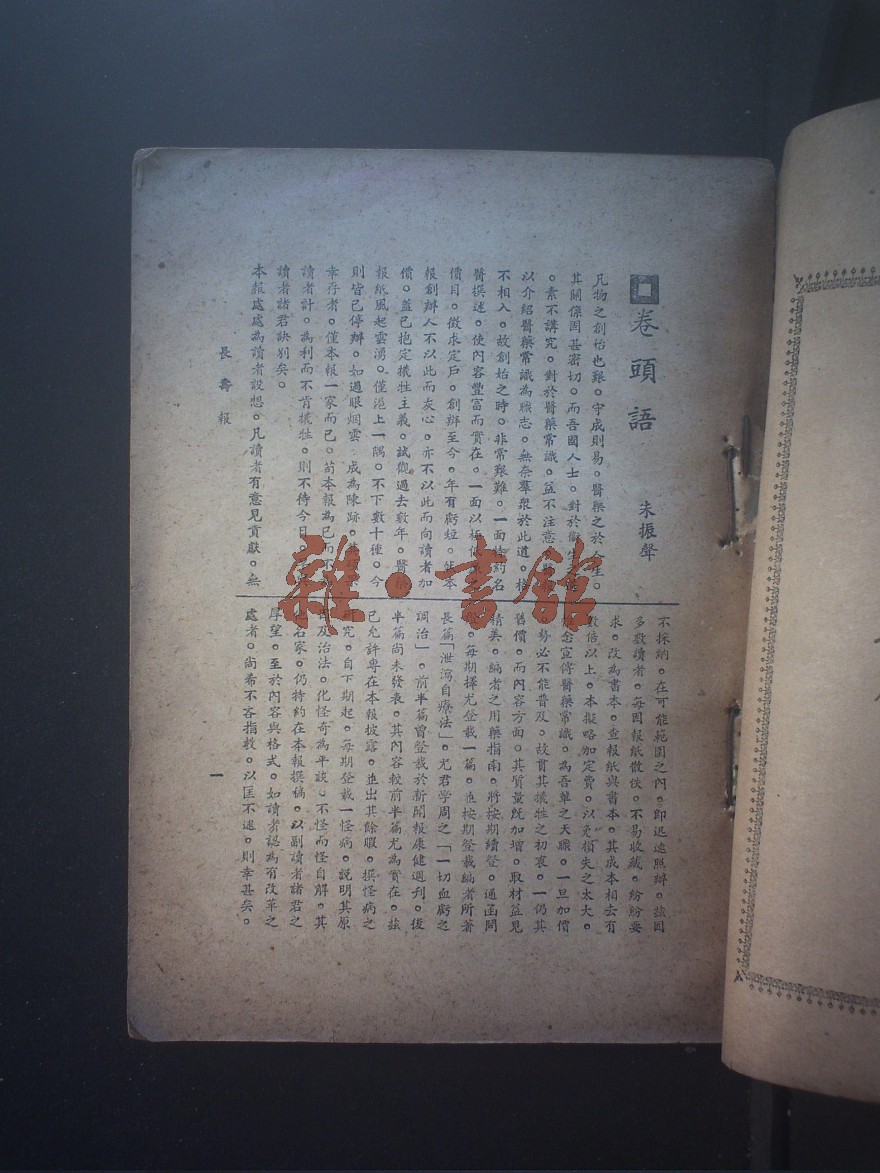 卷頭語
朱振聲
凡物之創始也艱。守成則易。醫藥之於人生。
其關係固甚密切。而吾國人士。對於衞生
。素不講究。對於醫藥常識。益不注意。
以介紹醫藥常識為職志。無奈羣衆於此道。格
不相入。故創始之時。非常艱難。一面特約名
醫撰述。使內容豐富而實在。一面以極低
價目。徵求定戶。創辦至今。年有虧短。然本
報創辦人不以此而灰心。亦不以此而向讀者加
價。蓋已抱定犧牲主義。試觀過去數年。醫藥
報紙風起雲湧。僅滬上一隅。不下數十種。今
則皆已停辦。如過眼烟雲。成為陳跡。
幸存者。僅本報一家而已。苟本報為已而不
讀者計。為利而不肯犧牲。則不待今日。
讀者諸君訣別矣。
本報處處為讀者設想。凡讀者有意見貢獻。無
不採納。在可能範圍之內。即迅速照辦。茲因
多數讀者。每因報紙散佚。不易收藏。紛紛要
求。改為書本。查報紙與書本。其成本相去有
數倍以上。本擬略加定費。以免損失之太大。
念宣傳醫藥常識。為吾輩之天職。一旦加價
。勢必不能普及。故貫其犧牲之初衷。一仍其
舊價。而內容方面。其質量旣加增。取材益見
精美。編者之用藥指南。將按期續登。通函問
。每期擇尤登載一篇。並按期登載編者所著
長篇「泄瀉自療法」。尤君學周之「一切血虧之
調治」。前半篇曾登載於新聞報康健週刊。後
半篇尚未發表。其內容較前半篇尤為實在。茲
已允許專在本報披露。並出其餘暇。撰怪病之
究。自下期起。每期登載一怪病。說明其原
及治法。化怪奇為平談。不怪而怪自解。其
名家。仍特約在本報撰稿。以副讀者諸君之
厚望。至於內容與格式。如讀者認為有改革之
處者。尚希不吝指教。以匡不逮。則幸甚矣。
長壽報
一
雜·書館